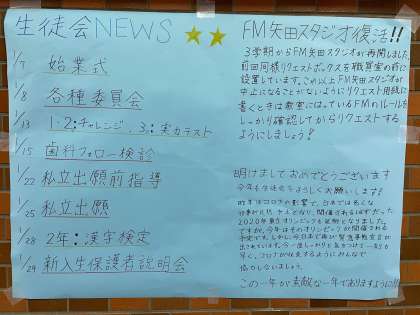 生徒会NEWS
1/7 始業式
1/8 各種委員会
1/13 1・2:チャレンジ、3:実力テスト
1/15 歯科フォロー検診
1/22 私立出願前指導
1/25 私立出願
1/28 2年:漢字検定
1/29 新入生保護者説明会
FM矢田スタジオ復活!!
3学期からFM矢田スタジオが再開しました
前回同様リクエストボックスを職員室の前に
設置しています。これ以上FM矢田スタジオが
中止になることがないようにリクエスト用紙に
書くときは教室にはっているFMのルールを
しっかり確認してからリクエストする
ようにしましょう!
明けましておめでとうございます
今年も生徒会をよろしくお願いします!
昨年はコロナの影響で、日本では色んな
行事が
2020年東京オリンピックも延期となりました。
ですが、今年はそのオリンピックが開催される
予定です。しかし今日まで再び緊急事態宣言が
出されています。
コロナが収束するようにみんなで
協力しましょう。
この一年が素敵な一年でありますように!!